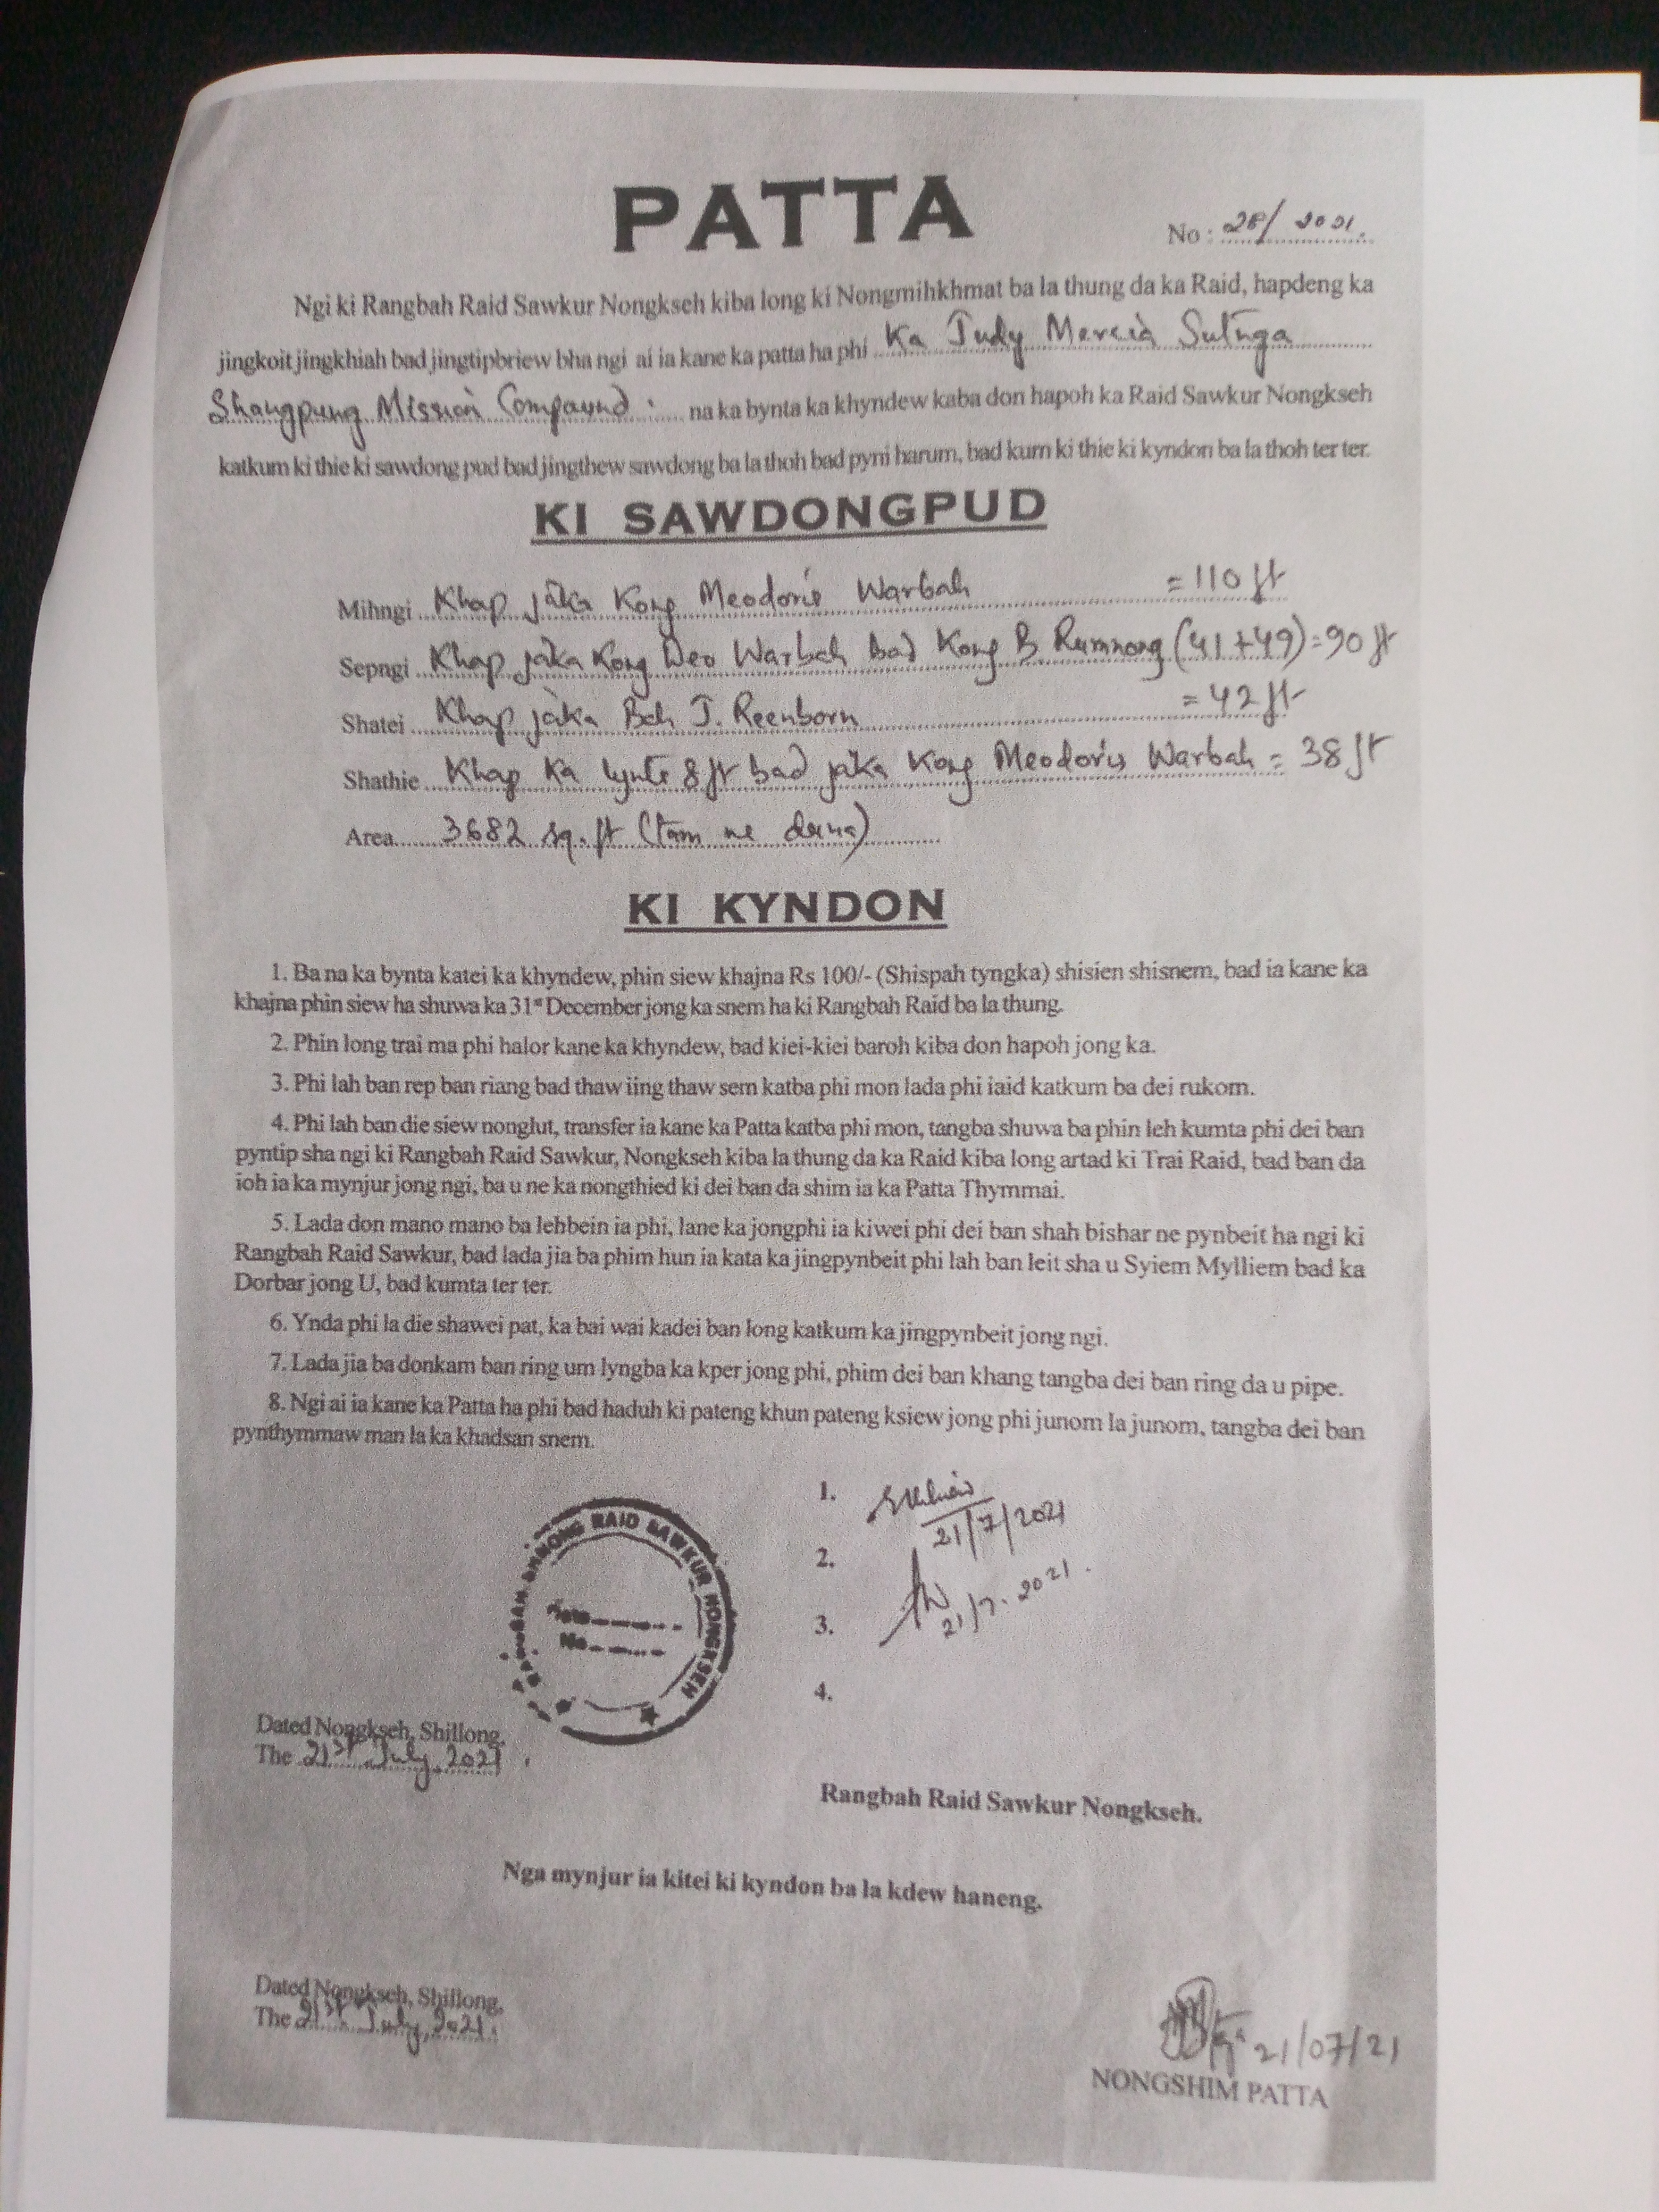 PATTA
No : 28/ 2021.
Ngi ki Rangbah Raid Sawkur Nongkseh kiba long ki Nongmihkhmat ba la thung da ka Raid, hapdeng ka
jingkoit jingkhiah bad jingtipbriew bha ngi ai ia kane ka patta ha phi Ka Judy Mercia Sutnga
Shangpung Mission Compound : na ka bynta ka khyndew kaba don hapoh ka Raid Sawkur Nongkseh
katkum ki thie ki sawdong pud bad jingthew sawdong ba la thoh bad pyni harum, bad kum ki thie ki kyndon ba la thoh ter ter.
KI SAWDONGPUD
Mihngi Khap jaka Kong Meodoris Warbah = 110 ft
Sepngi Khap jaka Kong Deo Warbah bad Kong B Rumnong (41+49) = 90 ft
Shatei Khap jaka Bah J. Reenborn = 42 ft
Shathie Khap Ka lynti 8 ft bad jaka Kong Meodoris Warbah = 38 ft
Area 3682 sq. ft (tam ne duna)
KI KYNDON
1. Ba na ka bynta katei ka khyndew, phin siew khajna Rs 100/- (Shispah tyngka) shisien shisnem, bad ia kane ka
khajna phin siew ha shuwa ka 31st December jong ka snem ha ki Rangbah Raid ba la thung.
2. Phin long trai ma phi halor kane ka khyndew, bad kiei-kiei baroh kiba don hapoh jong ka.
3. Phi lah ban rep ban riang bad thaw iing thaw sem katba phi mon lada phi iaid katkum ba dei rukom.
4. Phi lah ban die siew nonglut, transfer ia kane ka Patta katba phi mon, tangba shuwa ba phin leh kumta phi dei ban
pyntip sha ngi ki Rangbah Raid Sawkur, Nongkseh kiba la thung da ka Raid kiba long artad ki Trai Raid, bad ban da
ioh ia ka mynjur jong ngi, ba u ne ka nongthied ki dei ban da shim ia ka Patta Thymmai.
5. Lada don mano mano ba lehbein ia phi, lane ka jongphi ia kiwei phi dei ban shah bishar ne pynbeit ha ngi ki
Rangbah Raid Sawkur, bad lada jia ba phim hun ia kata ka jingpynbeit phi lah ban leit sha u Syiem Mylliem bad ka
Dorbar jong U, bad kumta ter ter.
6. Ynda phi la die shawei pat, ka bai wai kadei ban long katkum ka jingpynbeit jong ngi.
7. Lada jia ba donkam ban ring um lyngba ka kper jong phi, phim dei ban khang tangba dei ban ring da u pipe.
8. Ngi ai ia kane ka Patta ha phi bad haduh ki pateng khun pateng ksiew jong phi junom la junom, tangba dei ban
pynthymmaw man la ka khadsan snem.
1.
21/7/2021
2.
21/7.2021.
3.
4.
RAID SAWKUR NONGKSEH
No
Dated Nongkseh, Shillong,
The 21st July, 2021.
Rangbah Raid Sawkur Nongkseh.
Nga mynjur ia kitei ki kyndon ba la kdew haneng.
Dated Nongkseh, Shillong,
The 21st July, 2021.
21/07/21
NONGSHIM PATTA